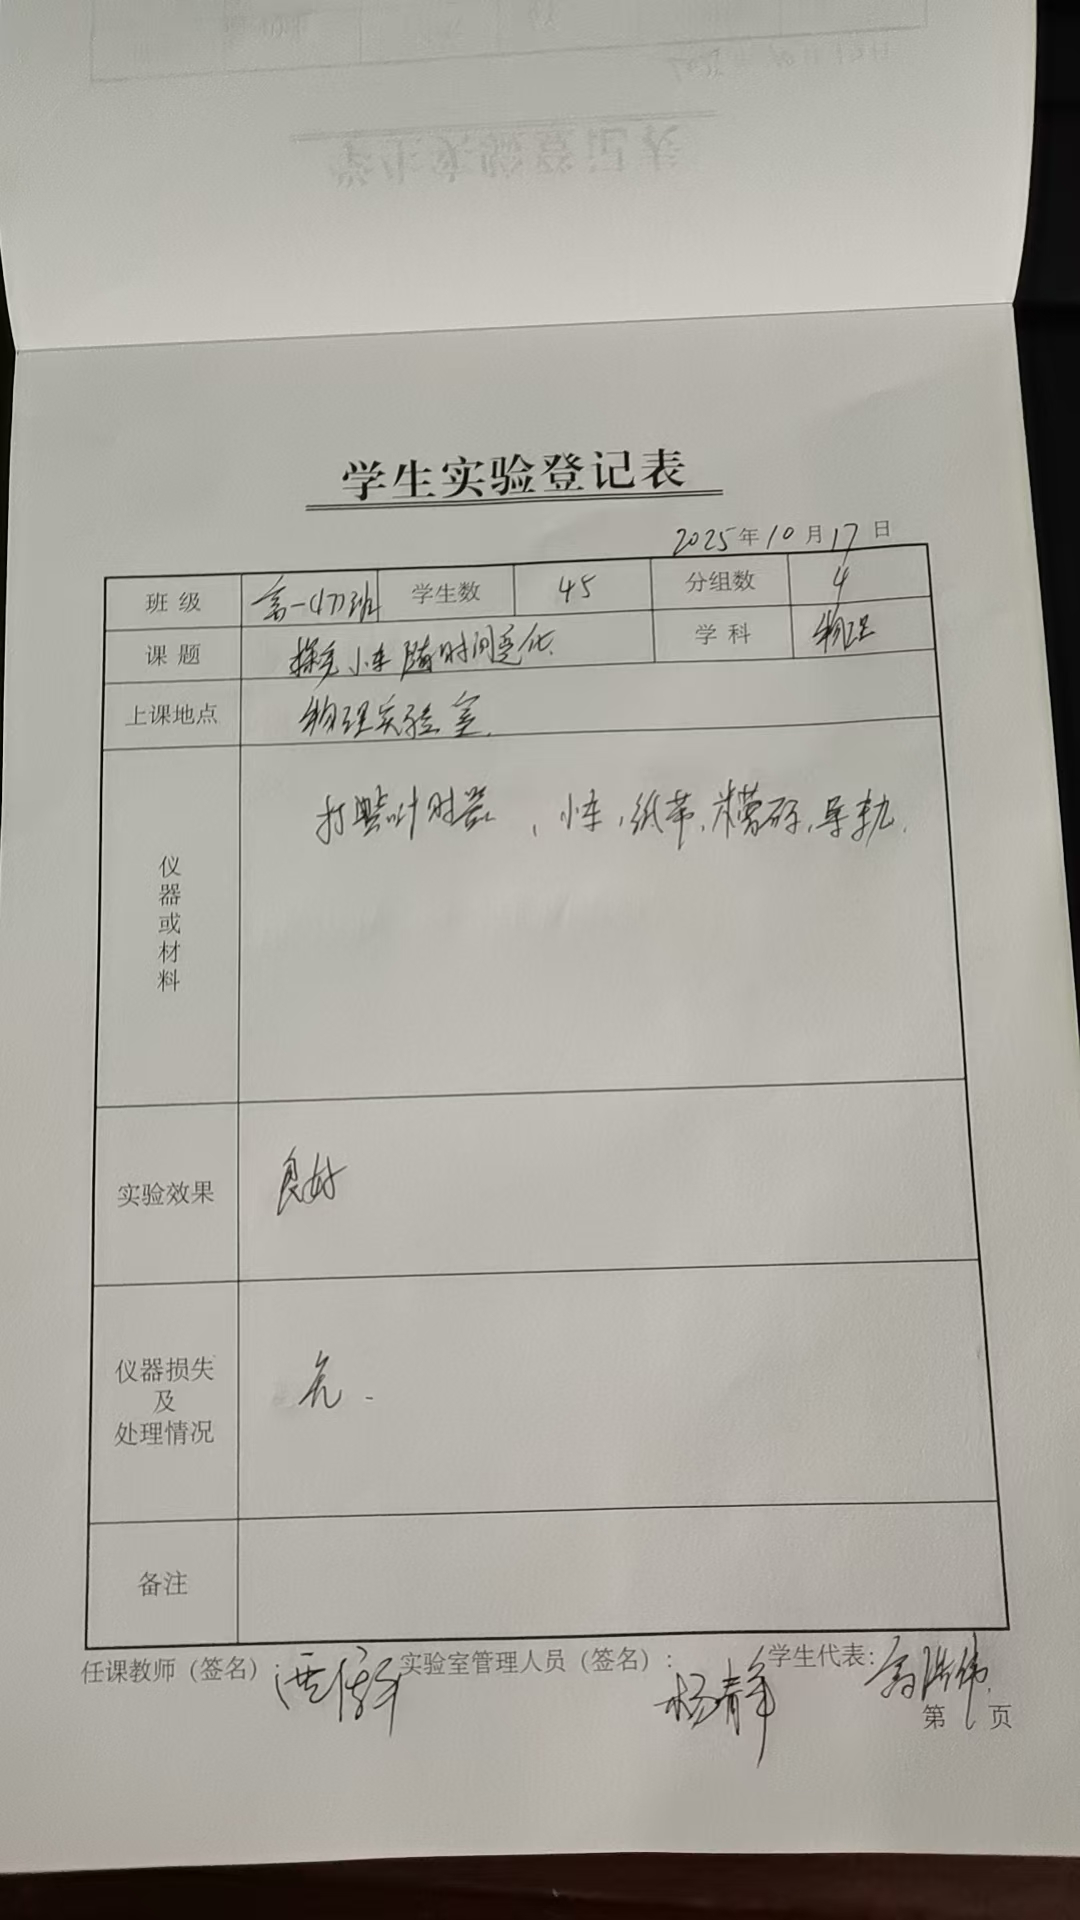 学生实验登记表
2025年10月17日
班级 高一(17)班 学生数 45 分组数 4
课题 探究小车随时间变化 学科 物理
上课地点 物理实验室.
仪器或材料 打点计时器、小车,纸带,槽码,导轨.
实验效果 良好
仪器损失及处理情况 无.
备注
任课教师(签名): 实验室管理人员(签名): 杨静 学生代表:
第1页